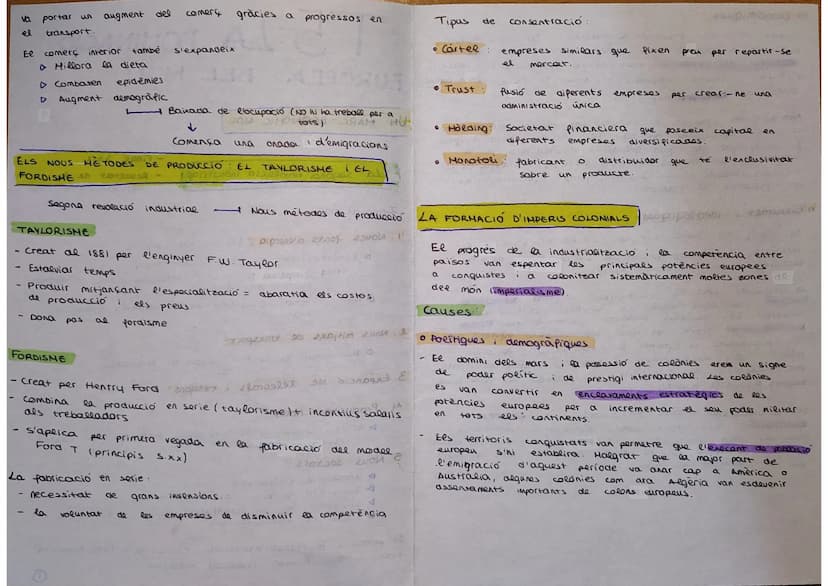 va portar un augment del comerç gràcies a progressos en
el transport.
El comerç interior també s'expandeix
▷ Millora la dieta
▷ Combaten epidèmies
▷ Augment demogràfic
→ Baixada de l'ocupació (NO hi ha treball per a
tots)
↓
Comença una onada d'emigracions
ELS NOUS MÈTODES DE PRODUCCIÓ: EL TAYLORISME I EL
FORDISME
Segona revolució industrial → Nous mètodes de producció
TAYLORISME
- Creat al 1881 per l'enginyer F.W. Taylor
- Estalviar temps
- Produir mitjançant l'especialització = abaratia els costos
de producció i els preus
- Dona pas al fordisme
FORDISME
- Creat per Henry Ford
- Combina la producció en sèrie (taylorisme) + incentius salaris
dels treballadors
- S'aplica per primera vegada en la fabricació del model
Ford T (principis s.xx)
La fabricació en sèrie:
- necessitat de grans
- la voluntat de les empreses de disminuir la competència
Tipus de consentració:
• Càrtel: empreses similars que fixen preu per repartir-se
el mercat.
• Trust: fusió de diferents empreses per crear-ne una
administració única
• Hòlding: Societat financiera que poseeix capital en
diferents empreses diversificades.
• Monopoli: fabricant o distribuidor que té l'exclusivitat
sobre un producte.
LA FORMACIÓ D'IMPERIS COLONIALS
El progrés de la industrialització i la competència entre
països van espentar les principals potències europees
a conquistes i a colonitzar sistemàticament moltes zones
del món (imperialisme).
Causes:
o Polítiques i demogràfiques
- El domini dels mars i la possessió de colònies eren un signe
de poder polític i de prestigi internacional. Les colònies
es van convertir en enclavaments estratègics de les
potències europees per a incrementar el seu poder militar
en tots els continents.
- Els territoris conquistats van permetre que l'excedent de població
europeu s'hi establira. Malgrat que la major part de
l'emigració d'aquest període va anar cap a Amèrica o
Austràlia, algunes colònies com ara Algèria van esdevenir
assentaments importants de colons europeus.